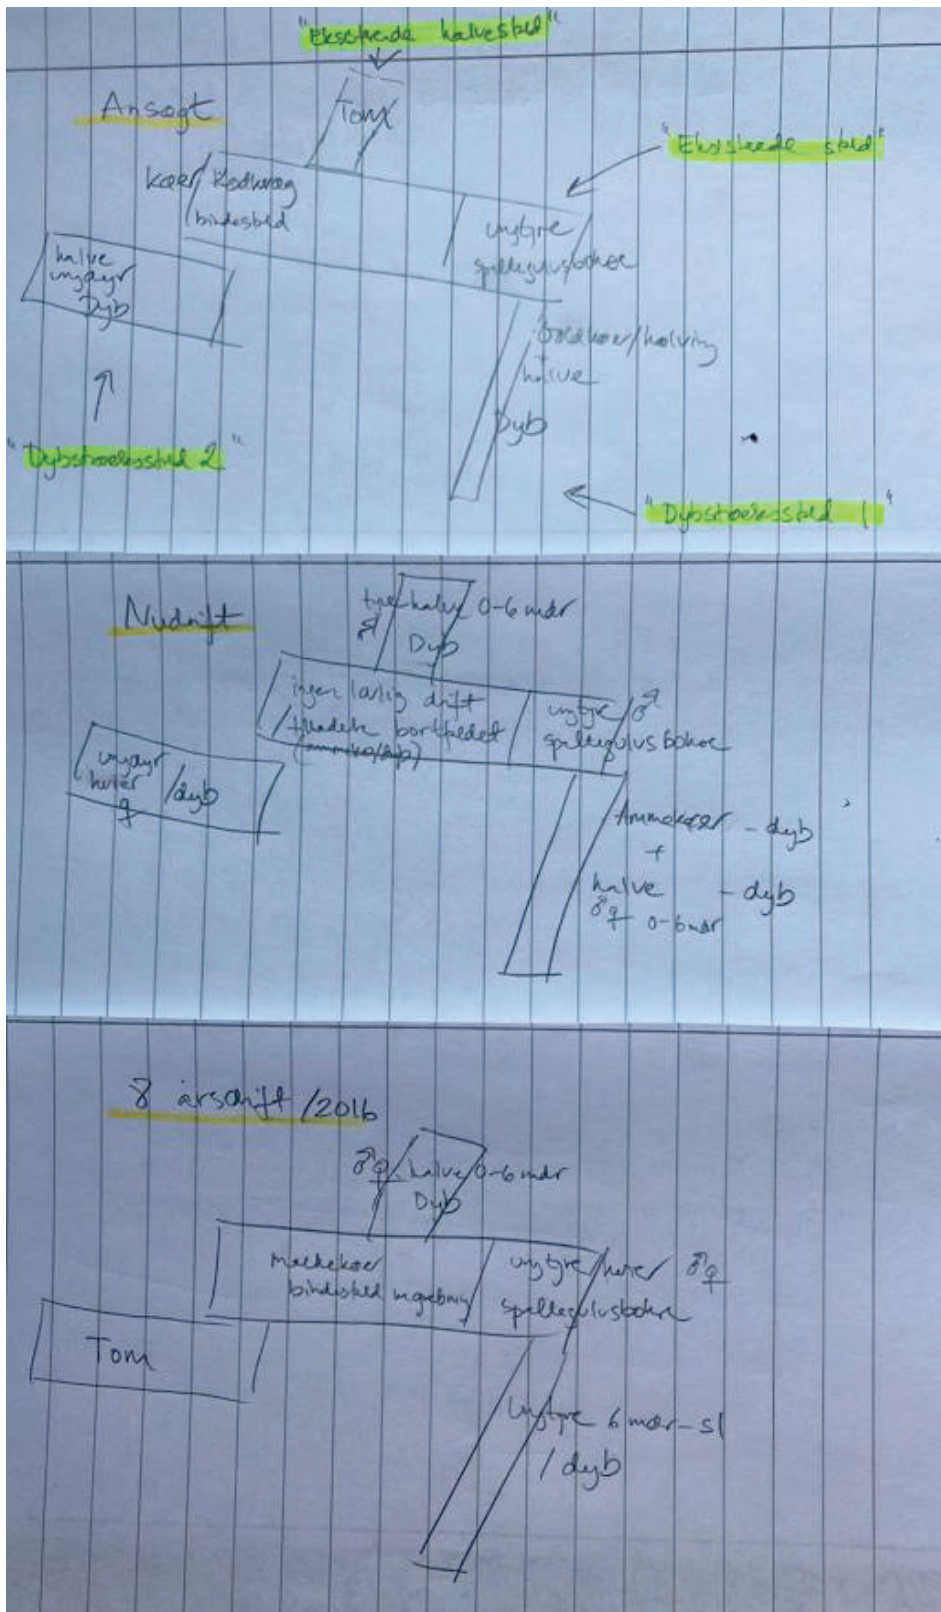 "Eksisterende kalvestald"
Ansøgt
Tom
"Eksisterende stald"
Køer/Kødkvæg
bindestald
ungtyre
spaltegulvsbokse
kalve
ungdyr
Dyb
Goldkoer/kælving
+
kalve
Dyb
"Dybstrøelsesstald 2"
"Dybstrøelsesstald 1"
Nudrift
tyre kalve 0-6 mdr
♂
Dyb
ingen lovlig drift
tilladelse bortfaldet
(ammekø/dyb)
ungtyre ♂
spaltegulvsbokse
ungdyr
kvier /dyb
♀
Ammekøer - dyb
+
kalve - dyb
♂♀ 0-6 mdr
8 årsdrift /2016
♂♀ kalve 0-6 mdr
Dyb
malkekøer
bindestald m grebning
ungtyre/kvier ♂♀
spaltegulvsbokse
Tom
Ungtyre 6 mdr-sl
/dyb